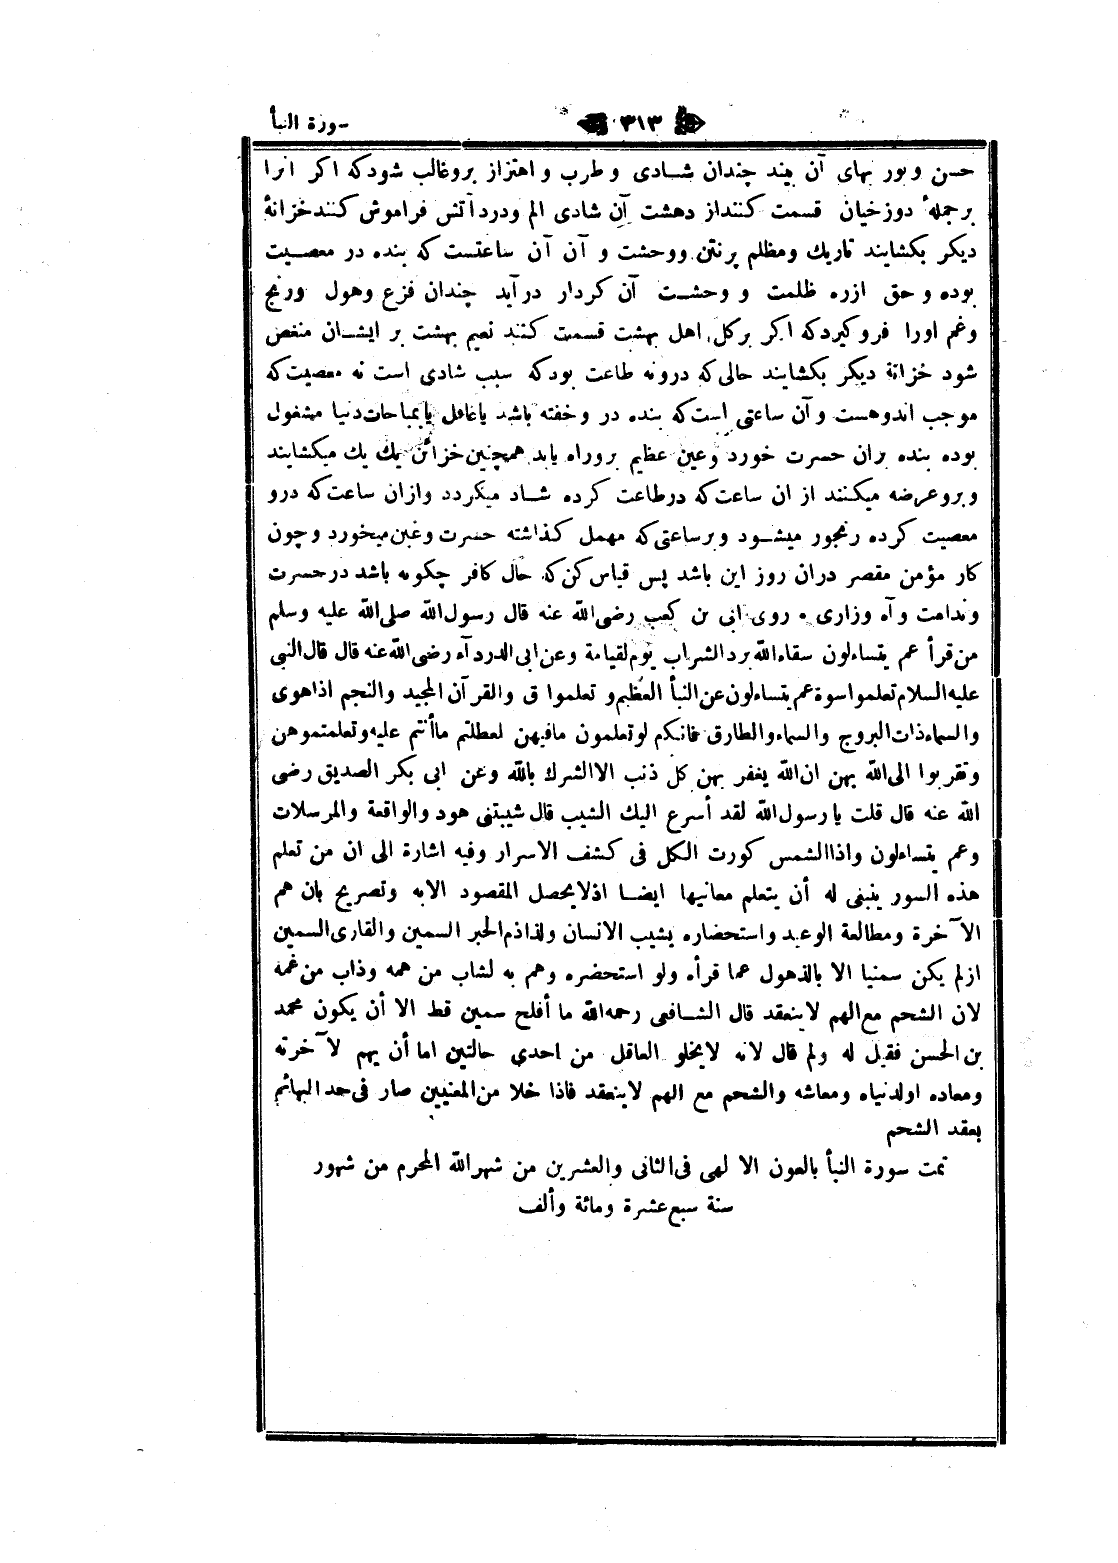 سورة النبأ ٣١٣
حسن ونور بهاى آن بيند چندان شادى وطرب واهتزاز بروغالب شودكه اكر انرا
برجملۀ دوزخيان قسمت كننداز دهشت آن شادى الم ودرد آتش فراموش كنندخزانۀ
ديكر بكشايند تاريك ومظلم پرنتن ووحشت و آن آن ساعتست كه بنده در معصيت
بوده وحق ازره ظلمت و وحشت آن كردار درآيد چندان فزع وهول ورنج
وغم اورا فروكيردكه اكر بركل اهل بهشت قسمت كنند نعيم بهشت بر ايشان منغص
شود خزانۀ ديكر بكشايند خالى كه درونه طاعت بودكه سبب شادى است نه معصيت كه
موجب اندوهست وآن ساعتى است كه بنده در وخفته باشد ياغافل يابمباحات دنيا مشغول
بوده بنده بران حسرت خورد وغبن عظيم بروراه يابد همچنين خزائن يك يك ميكشايند
وبروعرضه ميكنند از ان ساعت كه درطاعت كرده شاد ميكردد وازان ساعت كه درو
معصيت كرده رنجور ميشود وبرساعتى كه مهمل كذاشته حسرت وغبن ميخورد وچون
كار مؤمن مقصر دران روز اين باشد پس قياس كن كه حال كافر چكونه باشد درحسرت
وندامت وآه وزارى • روى ابى بن كعب رضى الله عنه قال رسول الله صلى الله عليه وسلم
من قرأ عم يتساءلون سقاه الله برد الشراب يوم لقيامة وعن ابى الدردآء رضى الله عنه قال قال النبى
عليه السلام تعلموا سوة عم يتساءلون عن النبأ العظيم و تعلموا ق والقرآن المجيد والنجم اذا هوى
والسماء ذات البروج والسماء والطارق فانكم لو تعلمون مافيهن لعطلتم ماأنتم عليه وتعلمتموهن
وتقربوا الى الله بهن ان الله يغفر بهن كل ذنب الا الشرك بالله وعن ابى بكر الصديق رضى
الله عنه قال قلت يا رسول الله لقد أسرع اليك الشيب قال شيبتنى هود والواقعة والمرسلات
وعم يتساءلون واذا الشمس كورت الكل فى كشف الاسرار وفيه اشارة الى ان من تعلم
هذه السور ينبغى له أن يتعلم معانيها ايضا اذلا يحصل المقصود الابه وتصريح بان هم
الآخرة ومطالعة الوعيد واستحضاره يشيب الانسان ولذا ذم الحبر السمين والقارى السمين
ازلم يكن سمنيا الا بالذهول عما قرأه ولو استحضره وهم به لشاب من همه وذاب من غمه
لان الشحم مع الهم لاينعقد قال الشافعى رحمه الله ما أفلح سمين قط الا أن يكون محمد
بن الحسن فقيل له ولم قال لانه لا يخلو العاقل من احدى حالتين اما أن يهم لآخرته
ومعاده اولدنياه ومعاشه والشحم مع الهم لاينعقد فاذا خلا من المعنيين صار فى حد البهائم
بعقد الشحم
تمت سورة النبأ بالعون الا لهى فى الثانى والعشرين من شهر الله المحرم من شهور
سنة سبع عشرة ومائة وألف